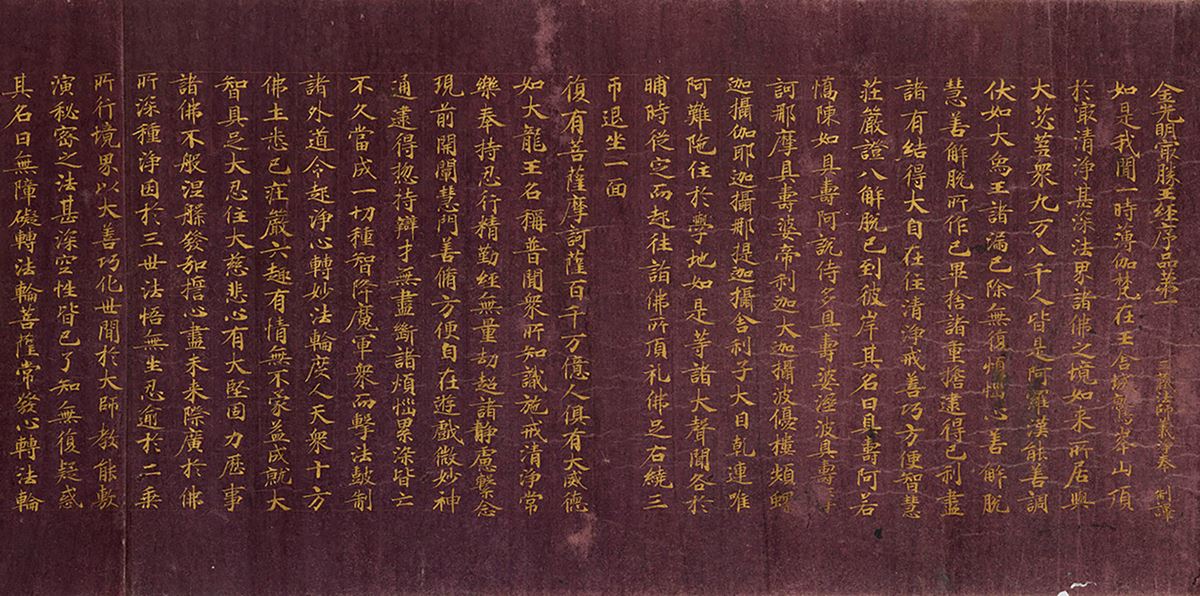 金光明㝡勝王經序品第一 三藏法師義淨奉 制譯
如是我聞一時薄伽梵在王舍城鷲峯山頂
於㝡清淨甚深法界諸佛之境如来所居與
大苾芻衆九万八千人皆是阿羅漢能善調
伏如大象王諸漏已除無復煩惱心善解脫
慧善解脫所作已畢捨諸重擔逮得己利盡
諸有結得大自在住清淨戒善巧方便智慧
莊嚴證八解脫已到彼岸其名曰具壽阿若
憍陳如具壽阿說侍多具壽婆濕波具壽摩
訶那摩具壽婆帝利迦大迦攝波優樓頻螺
迦攝伽耶迦攝那提迦攝舍利子大目乹連唯
阿難陁住於學地如是等諸大聲聞各於
晡時從定而起往詣佛所頂礼佛足右繞三
帀退坐一面
復有菩薩摩訶薩百千万億人俱有大威德
如大龍王名稱普聞衆所知識施戒清淨常
樂奉持忍行精勤經無量劫超諸靜慮繫念
現前開闡慧門善脩方便自在遊戲微妙神
通逮得惣持辯才無盡斷諸煩惱累染皆亡
不久當成一切種智降魔軍衆而擊法鼓制
諸外道令起淨心轉妙法輪度人天衆十方
佛土悉已莊嚴六趣有情無不蒙益成就大
智具足大忍住大慈悲心有大堅固力歷事
諸佛不般涅槃發弘誓心盡未来際廣於佛
所深種淨因於三世法悟無生忍逾於二乗
所行境界以大善巧化世間於大師教能敷
演秘密之法甚深空性皆已了知無復疑惑
其名曰無障礙轉法輪菩薩常發心轉法輪